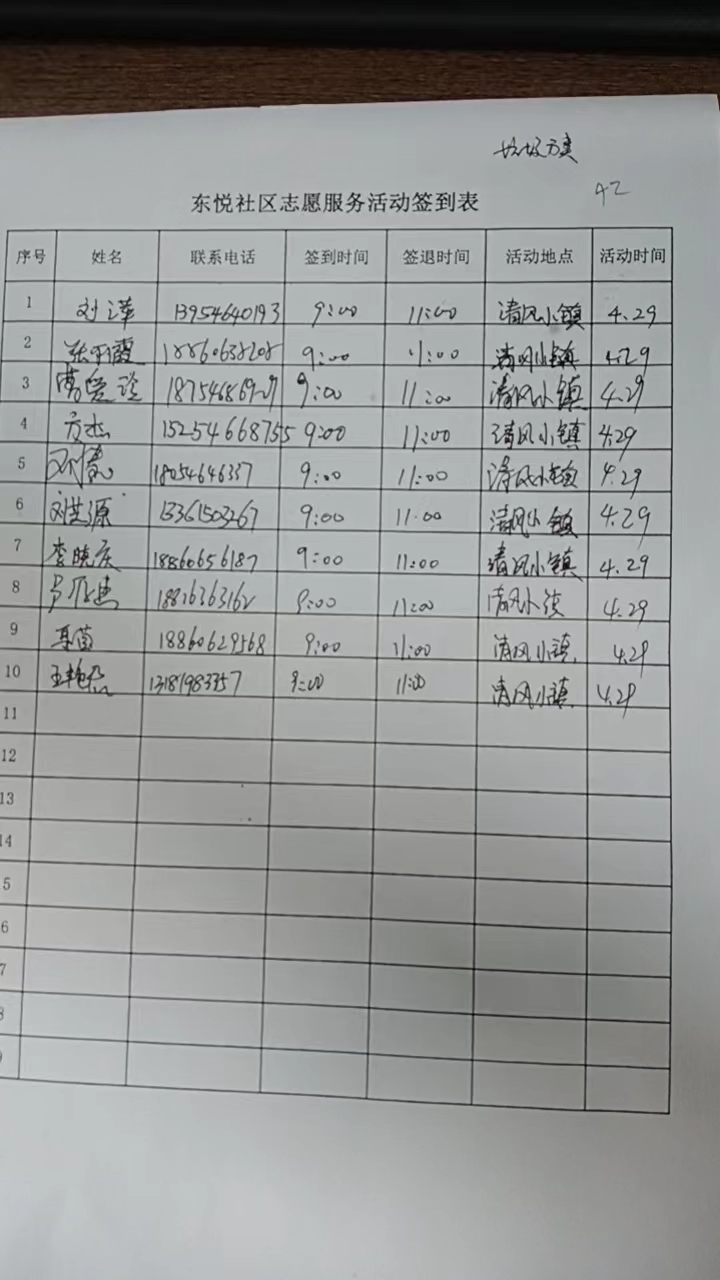 42
东悦社区志愿服务活动签到表
序号 姓名 联系电话 签到时间 签退时间 活动地点 活动时间
1 刘萍 13954640193 9:00 11:00 清风小镇 4.29
2 9:00 11:00 清风小镇 4.29
3 9:00 11:00 清风小镇 4.29
4 方杰 15254668755 9:00 11:00 清风小镇 4.29
5 刘慧 9:00 11:00 清风小镇 4.29
6 刘洪源 9:00 11:00 清风小镇 4.29
7 李晓庆 18860656187 9:00 11:00 清风小镇 4.29
8 9:00 11:00 清风小镇 4.29
9 18860629568 9:00 11:00 清风小镇 4.29
10 9:00 11:00 清风小镇 4.29
11
12
13
14
5
6
7
8
9